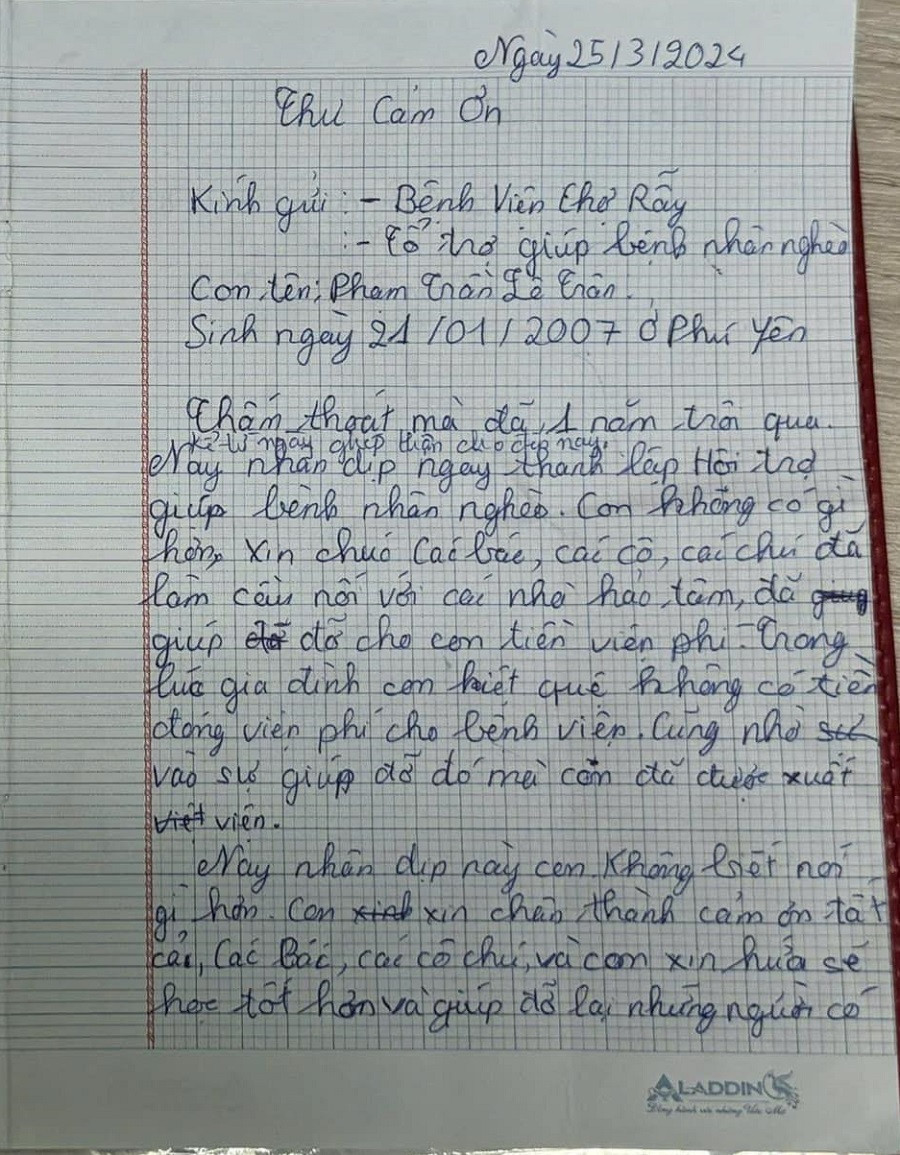 Ngày 25/3/2024
Thư Cảm Ơn
Kính gửi : - Bệnh Viện Chợ Rẫy
: - Tổ trợ giúp bệnh nhân nghèo
Con tên; Phạm Trần Lê Trân.
Sinh ngày 21/01/2007 Ở Phú Yên
Thấm thoát mà đã 1 năm trôi qua.
kể từ ngày ghép thận cho đến nay.
Này nhân dịp ngày thành lập Hội trợ
giúp bệnh nhân nghèo. Con không có gì
hơn, xin chúc Các bác, các cô, các chú đã
làm cầu nối với các nhà hảo tâm, đã
giúp đỡ cho con tiền viện phí. Trong
lúc gia đình con kiệt quệ không có tiền
đóng viện phí cho bệnh viện. Cũng nhờ
vào sự giúp đỡ đó mà con đã được xuất
viện.
Này nhân dịp này con Không biết nói
gì hơn. Con xin chân thành cảm ơn tất
cả, Các Bác, các cô chú, và con xin hứa sẽ
học tốt hơn và giúp đỡ lại những người có
ALADDIN
Đồng hành với những Ước Mơ